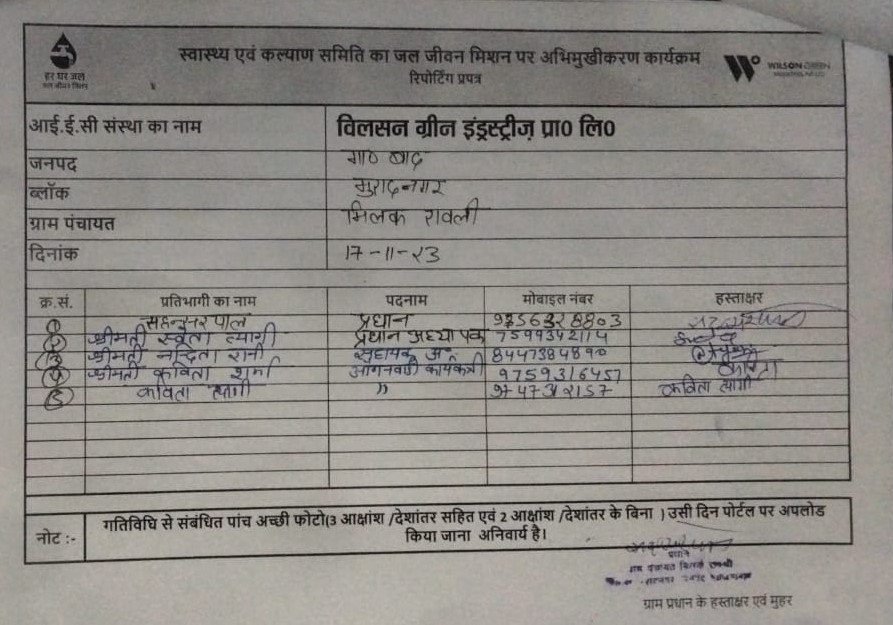 स्वास्थ्य एवं कल्याण समिति का जल जीवन मिशन पर अभिमुखीकरण कार्यक्रम
रिपोर्टिंग प्रपत्र
हर घर जल
जल जीवन मिशन
WILSON GREEN
आई.ई.सी संस्था का नाम विलसन ग्रीन इंड्रस्ट्रीज़ प्रा0 लि0
जनपद गा० बाद
ब्लॉक मुरादनगर
ग्राम पंचायत मिलक रावली
दिनांक 17-11-23
क्र.सं. प्रतिभागी का नाम पदनाम मोबाइल नंबर हस्ताक्षर
1 पाल प्रधान
2 श्रीमती स्वेता त्यागी प्रधान अध्यापक 7599342114
3 श्रीमती नन्दिता रानी सहायक अ० 8447384890
4 श्रीमती कविता शर्मा आंगनवाड़ी कार्यकत्री 9759316457 कविता
5 कविता त्यागी " कविता त्यागी
नोट :- गतिविधि से संबंधित पांच अच्छी फोटो(3 आक्षांश /देशांतर सहित एवं 2 आक्षांश /देशांतर के बिना ) उसी दिन पोर्टल पर अपलोड
किया जाना अनिवार्य है।
प्रधान
ग्राम पंचायत मिलक रावली
ग्राम प्रधान के हस्ताक्षर एवं मुहर